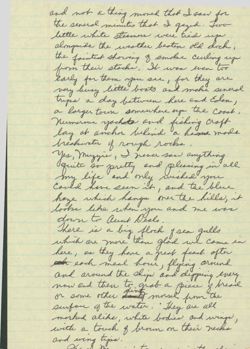 and not a thing moved that I saw for
the several minutes that I gazed. Two
little white steamers were tied up
alongside the weather beaten old dock,
the faintest showing of smoke curling up
from their stacks. It was even too
early for them you see, for they are
very busy little boats and make several
trips a day between here and Colon,
a larger town somewhere up the coast.
Numerous yachts and fishing craft
lay at anchor behind a made
breakwater of rough rocks.
Yes, Maggie, I never saw anything
quite so pretty and pleasing in all
my life and only wished you
could have seen it, and the blue
haze which hangs over the hills, it
looked like when you and me was
down to
There is a big flock of sea gulls
which are more than glad we came in
here, as they have a great feast after
each meal hour, flying around
and around the ship and dipping every
now and then to grab a piece of bread
or some other dainty morsel from the
surface of the water. They are all
marked alike, white bodies and wings,
with a touch of brown on their necks
and wing tips.